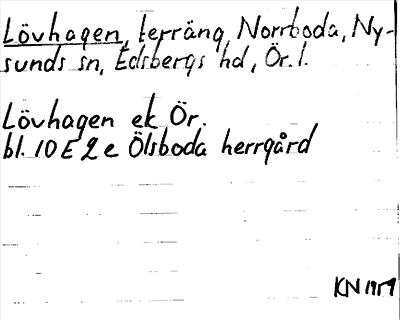 Lövhagen, terräng, Norrboda, Ny-
sunds sn, Edsbergs hd, Ör. l.
Lövhagen ek Ör.
bl. 10 E 2 e Ölsboda herrgård
KN